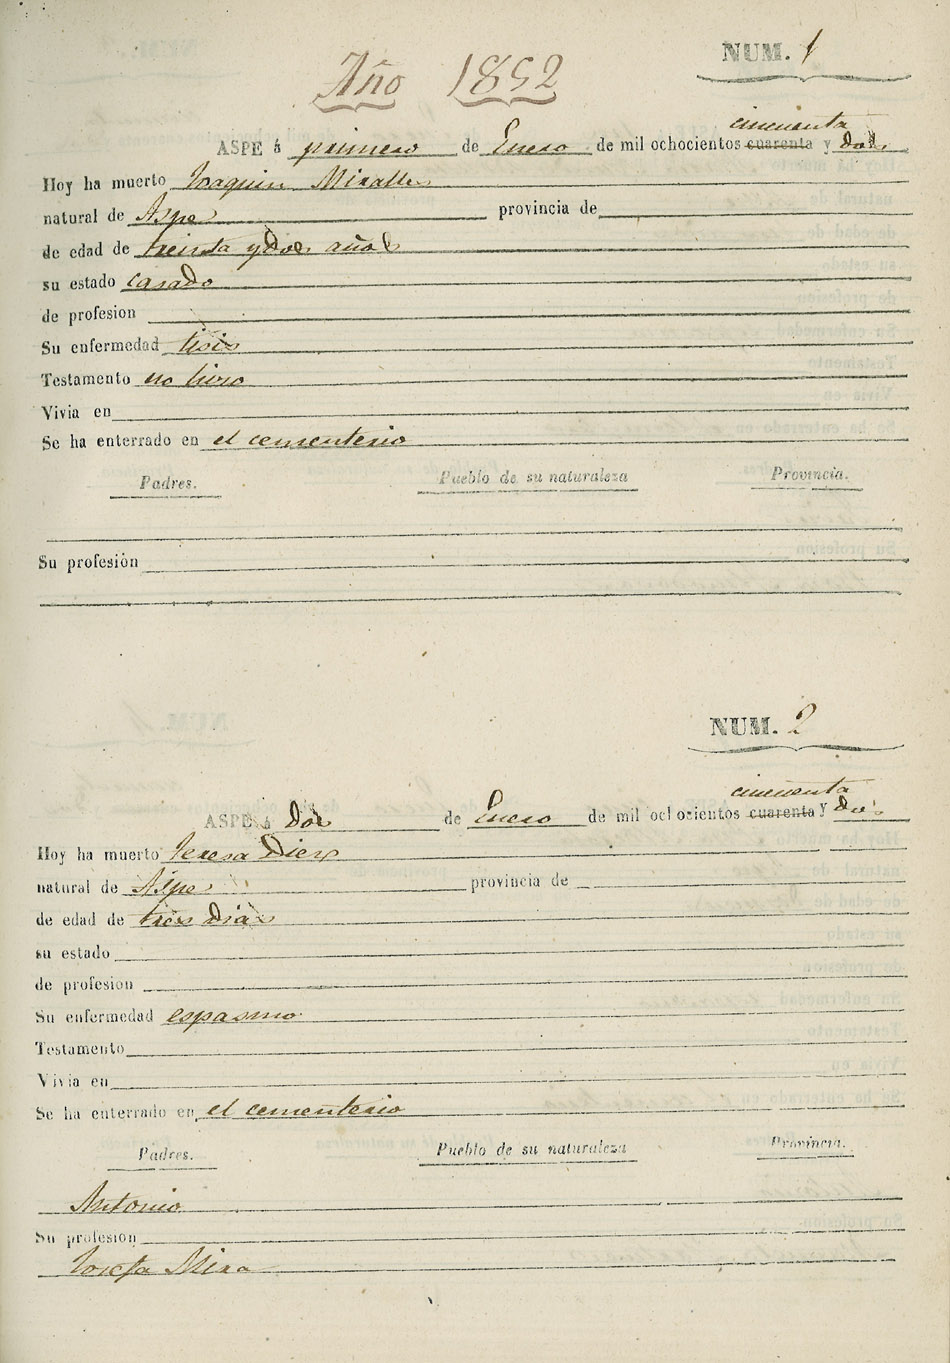 NUM. 1
Año 1852
cincuenta
ASPE á primero de Enero de mil ochocientos cuarenta y dos
Hoy ha muerto Joaquin Miralles
natural de Aspe provincia de
de edad de treinta y dos años
su estado casado
de profesion
Su enfermedad tisis
Testamento no hizo
Vivia en
Se ha enterrado en el cementerio
Padres. Pueblo de su naturaleza Provincia.
Su profesión
NUM. 2
cincuenta
ASPE á dos de Enero de mil ochocientos cuarenta y dos
Hoy ha muerto Teresa Diez
natural de Aspe provincia de
de edad de tres dias
su estado
de profesion
Su enfermedad espasmo
Testamento
Vivia en
Se ha enterrado en el cementerio
Padres. Pueblo de su naturaleza Provincia.
Antonio
Su profesion
Josefa Mira